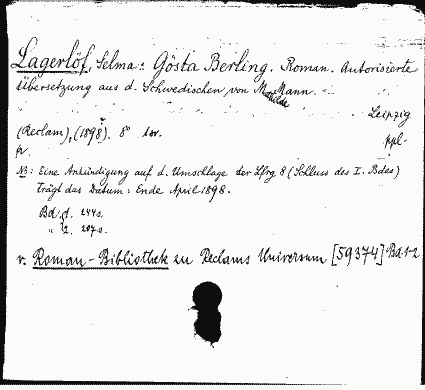 Lagerlöf, Selma: Gösta Berling. Roman. Autorisierte
Übersetzung aus d. Schwedischen von Mathilde Mann.
Leipzig
(Reclam), (1898). 8°
ppl.
NB: Eine Ankündigung auf d. Umschlage der Lfrg 8 (Schluss des I. Bdes)
Trägt das Datum: Ende April 1898.
Bd. 1. 244s.
" 2. 207s.
v. Roman-Bibliothek zu Reclams Universum [59374] Bd. 1-2